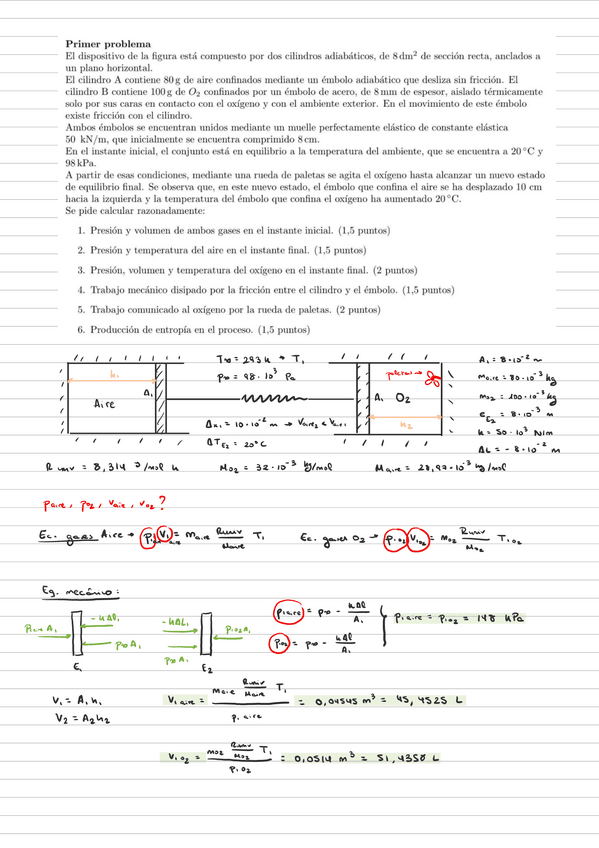 Primer problema
El dispositivo de la figura está compuesto por dos cilindros adiabáticos, de 8 dm² de sección recta, anclados a
un plano horizontal.
El cilindro A contiene 80 g de aire confinados mediante un émbolo adiabático que desliza sin fricción. El
cilindro B contiene 100 g de O₂ confinados por un émbolo de acero, de 8 mm de espesor, aislado térmicamente
solo por sus caras en contacto con el oxígeno y con el ambiente exterior. En el movimiento de este émbolo
existe fricción con el cilindro.
Ambos émbolos se encuentran unidos mediante un muelle perfectamente elástico de constante elástica
50 kN/m, que inicialmente se encuentra comprimido 8 cm.
En el instante inicial, el conjunto está en equilibrio a la temperatura del ambiente, que se encuentra a 20 °C y
98 kPa.
A partir de esas condiciones, mediante una rueda de paletas se agita el oxígeno hasta alcanzar un nuevo estado
de equilibrio final. Se observa que, en este nuevo estado, el émbolo que confina el aire se ha desplazado 10 cm
hacia la izquierda y la temperatura del émbolo que confina el oxígeno ha aumentado 20 °C.
Se pide calcular razonadamente:
1. Presión y volumen de ambos gases en el instante inicial. (1,5 puntos)
2. Presión y temperatura del aire en el instante final. (1,5 puntos)
3. Presión, volumen y temperatura del oxígeno en el instante final. (2 puntos)
4. Trabajo mecánico disipado por la fricción entre el cilindro y el émbolo. (1,5 puntos)
5. Trabajo comunicado al oxígeno por la rueda de paletas. (2 puntos)
6. Producción de entropía en el proceso. (1,5 puntos)
T∞ = 293 K → T₁
p∞ = 98 · 10³ Pa
h₁
A₁
Aire
Δx₁ = 10 · 10⁻² m → V₂
ΔT E₂ = 20°C
paletas
A₁ O₂
h₂
A₁ = 8 · 10⁻² m
maire = 80 · 10⁻³ kg
mO₂ = 100 · 10⁻³ kg
e E₂ = 8 · 10⁻³ m
k = 50 · 10³ N/m
ΔL = - 8 · 10⁻² m
Runiv = 8,314 J/mol K
MO₂ = 32 · 10⁻³ kg/mol
Maire = 28,97 · 10⁻³ kg/mol
paire, pO₂, Vaire, VO₂?
Ec. gases Aire → p₁ V₁ = maire Runiv/Maire T₁
Ec. gases O₂ → p₁O₂ V₁O₂ = mO₂ Runiv/MO₂ T₁O₂
Eq. mecánico:
p₁aire A₁
- kΔl₁
p∞ A₁
E₁
- kΔL₁
p₁O₂ A₁
p∞ A₁
E₂
p₁aire = p∞ - kΔl/A₁
p₁O₂ = p∞ - kΔl/A₁
p₁aire = p₁O₂ = 148 kPa
V₁ = A₁ h₁
V₂ = A₂ h₂
V₁aire = maire Runiv/Maire T₁ / p₁aire = 0,04545 m³ = 45,4525 L
V₁O₂ = mO₂ Runiv/MO₂ T₁ / p₁O₂ = 0,0514 m³ = 51,4358 L